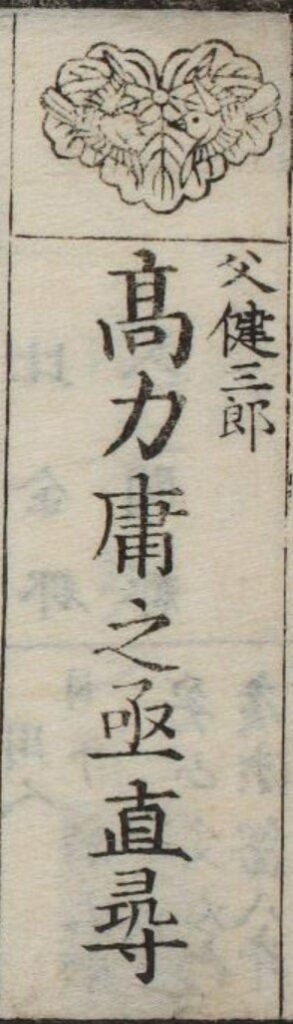 父健三郎
髙力庸之亟直尋